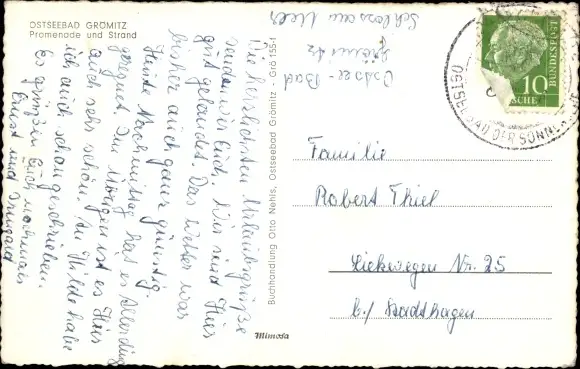 OSTSEEBAD GRÖMITZ
Promenade und Strand
Ostsee-Bad
Grömitz
Schloss am Meer
Die herzlichsten Urlaubsgrüße
senden wir Euch. Wir sind hier
gut gelandet. Das Wetter war
bisher auch ganz günstig.
Heute Nachmittag hat es allerdings
geregnet. Am Morgen ist es hier
auch sehr schön. An Wilde habe
ich auch schon geschrieben.
Es grüßen Euch nochmals
Ernst und Irmgard
Buchhandlung Otto Nehls, Ostseebad Grömitz - Grö 155-1
Mimosa
10
BUNDESPOST
OSTSEEBAD DER SONNE
Familie
Robert Thiel
Liekwegen Nr. 25
b./ Stadthagen